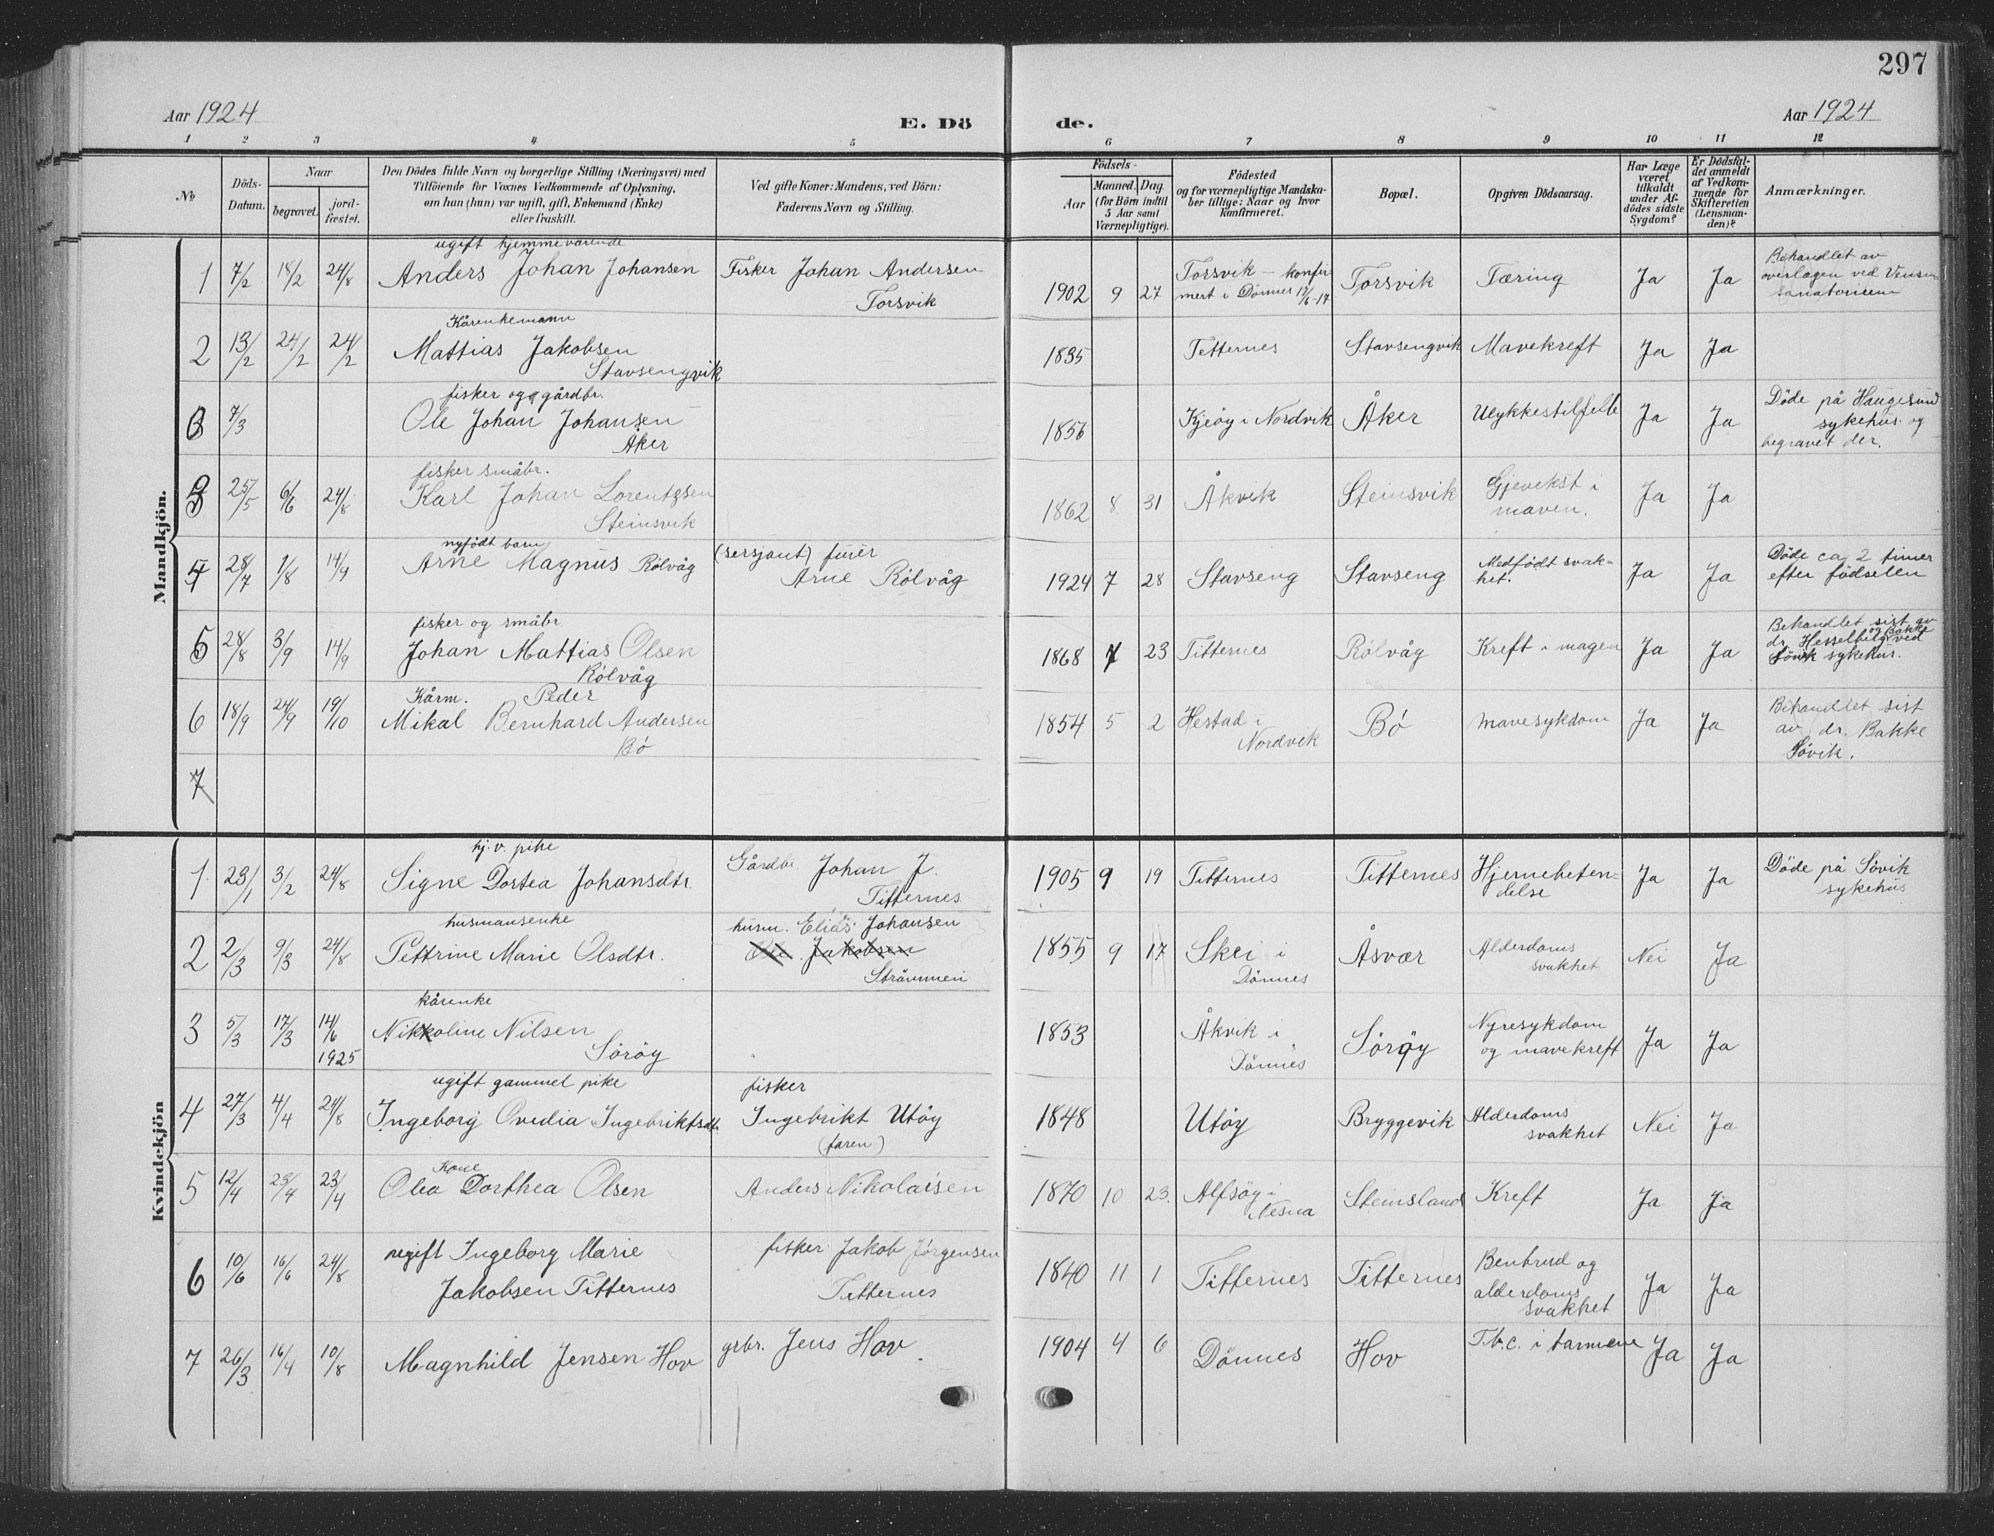 297
Aar 1924
E. Dö de.
Aar 1924
1 2 3 4 5 6 7 8 9 10 11 12
No
Döds-Datum.
Naar
begravet.
jord-fæstet.
Den Dödes fulde Navn og borgerlige Stilling (Næringsvei) med
Tilföiende for Voxnes Vedkommende af Oplysning,
om han (hun) var ugift, gift, Enkemand (Enke)
eller fraskilt.
Ved gifte Koner: Mandens, ved Börn:
Faderens Navn og Stilling.
Födsels-
Aar
Maaned. Dag.
(for Börn indtil
5 Aar samt
Værnepligtige).
Födested
og for værnepligtige Mandska-
ber tillige: Naar og hvor
konfirmeret.
Bopæl.
Opgiven Dödsaarsag.
Har Læge
været
tilkaldt
under Af-
dödes sidste
Sygdom?
Er Dödsfal-
det anmeldt
af Vedkom-
mende for
Skifteretten
(Lensman-
den)?
Anmærkninger.
Mandkjön.
ugift hjemmeværende
1 7/2 18/2 24/8 Anders Johan Johansen Fisker Johan Andersen
Torsvik
1902 9 27 Torsvik - konfir
mert i Dønnes 17/6-17
Torsvik Tæring Ja Ja
Behandlet av
overlægen ved
sanatorium
Kårenkemann
2 13/2 24/2 24/2 Mattias Jakobsen
Stavsengvik
1835 Tetternes Stavsengvik Mavekreft Ja Ja
fisker og gårdbr.
3 7/3 Ole Johan Johansen
Åker
1856 Kjeøy i Nordvik Åker Ulykkestilfelle Ja Ja
Døde på Haugesund
sykehus og
begravet der.
fisker småbr.
3 25/5 6/6 24/8 Karl Johan Lorentzsen
Steinsvik
1862 8 31 Åkvik Steinsvik Gjevekst i
maven. Ja Ja
nyfødt barn
4 28/7 1/8 14/9 Arne Magnus Rølvåg (sersjant) furer
Arne Rølvåg
1924 7 28 Stavseng Stavseng Medfødt svak-
het. Ja Ja
Døde ca 2 timer
efter fødselen
fisker og småbr.
5 28/8 3/9 14/9 Johan Mattias Olsen
Rølvåg
1868 7 23 Titternes Rølvåg Kreft i magen Ja Ja
Behandlet sist av
dr. Hesselberg og Bakke ved
Søvik sykehus.
Kårm. Peder
6 18/9 24/9 19/10 Mikal Bernhard Andersen
Bø
1854 5 2 Hestad i
Nordvik
Bø mavesykdom Ja Ja
Behandlet sist
av dr. Bakke
Søvik.
7
Kvindekjön
hj. v. pike
1 23/1 3/2 24/8 Signe Dortea Johansdtr. Gårdbr. Johan J.
Titternes
1905 9 19 Titternes Titternes Hjernebeten-
delse Ja Ja
Døde på Søvik
sykehus
husmansenke
2 2/3 9/3 24/8 Pettrine Marie Olsdtr. husm. Elias Johansen
Ole Jakobsen
Strømmen
1855 9 17 Skei i
Dønnes
Åsvær Alderdoms
svakhet Nei Ja
kårenke
3 5/3 17/3 14/6
1925
Nikkoline Nilsen
Sørøy
1853 Åkvik i
Dønnes
Sørøy Nyresykdom
og mavekreft Ja Ja
ugift gammel pike
4 27/3 4/4 24/8 Ingeborg Ovedia Ingebriktsdt. fisker
Ingebrikt Utøy
(faren)
1848 Utøy Bryggevik Alderdoms
svakhet Nei Ja
Kone
5 12/4 23/4 23/4 Olea Dorthea Olsen Anders Nikolaisen
1870 10 23. Alfsøy i
Nesna
Steinsland Kreft Ja Ja
6 10/6 16/6 24/8 ugift Ingeborg Marie
Jakobsen Titternes
fisker Jakob Jørgensen
Titternes
1840 11 1 Titternes Titternes Benbrud og
alderdoms
svakhet Ja Ja
7 26/3 16/4 10/8 Magnhild Jensen Hov grbr. Jens Hov
1904 4 6 Dønnes Hov T.b.c. i tarmene Ja Ja